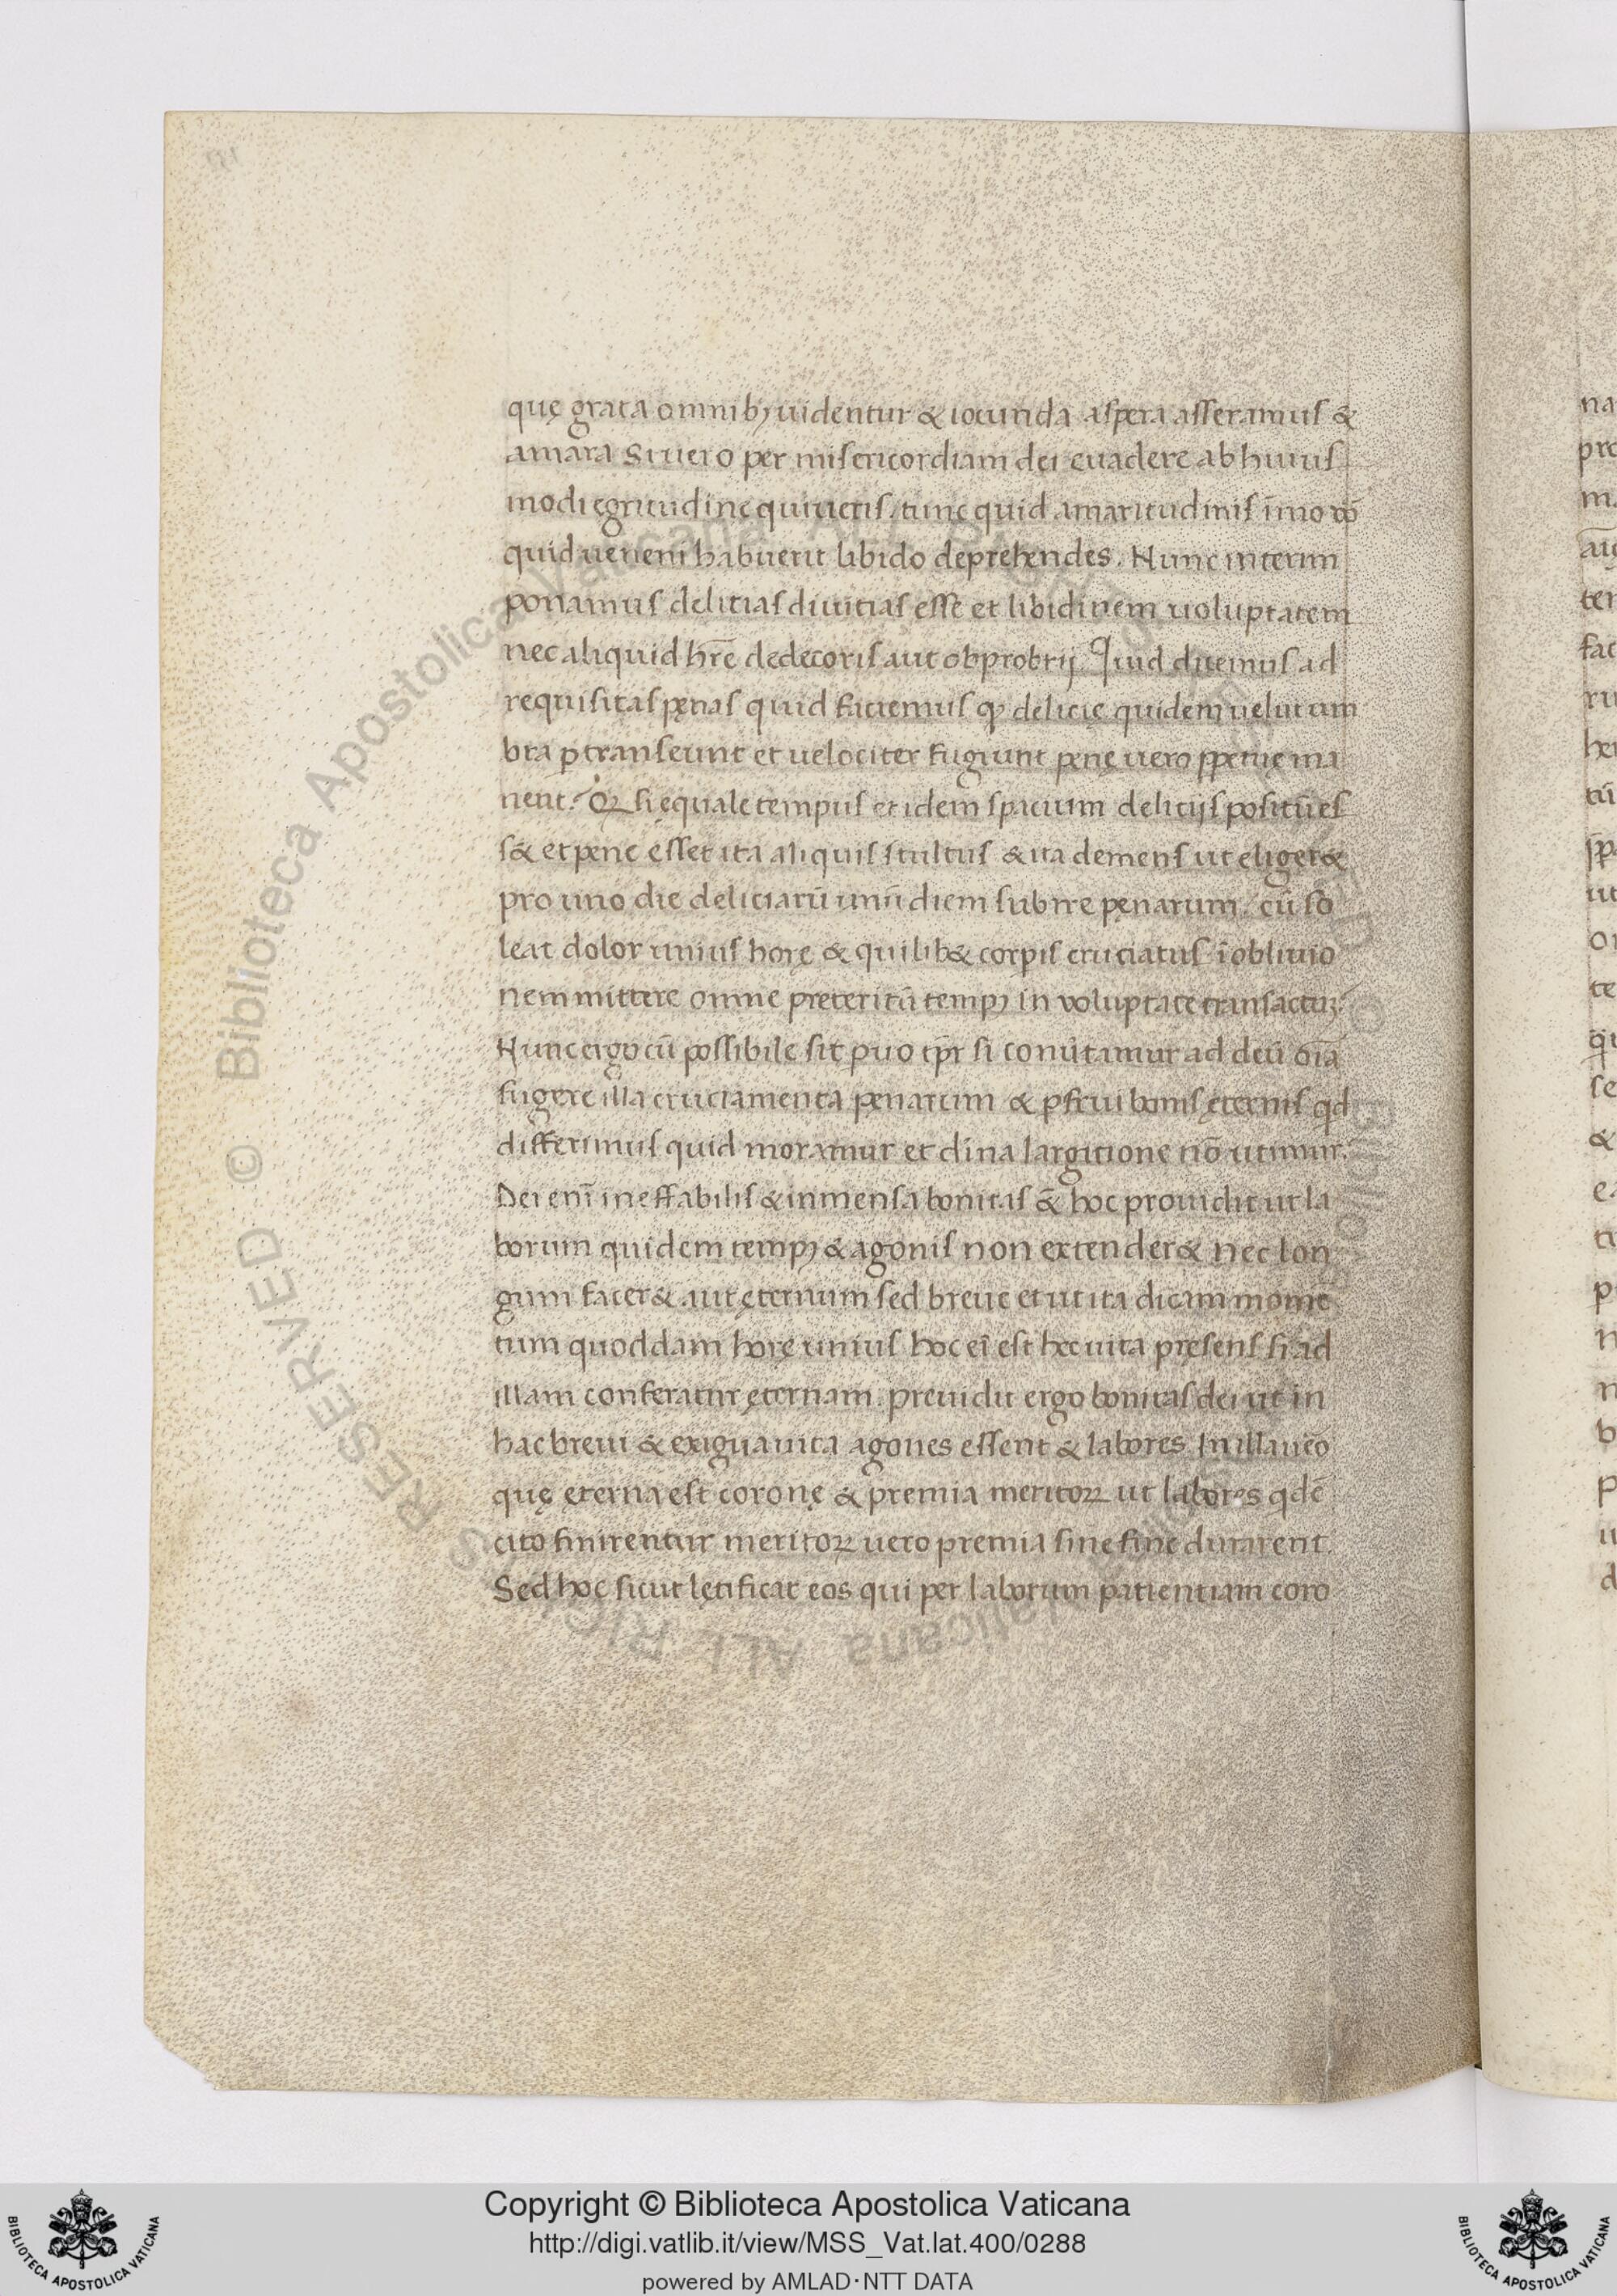 quę grata omnibꝫ uidentur & iocunda aspera asseramus &
amara Si uero per misericordiam dei euadere ab huius
modi egritudine quiueris. tunc quid amaritudinis īmo ūo
quid ueneni habuerit libido deprehendes. Nunc interim
ponamus delicias diuicias esse et libidinem uoluptatem
nec aliquid hr̄e dedecoris aut obprobrij Quid dicemus ad
requisitas pęnas quid faciemus qꝫ delicię quidem uelut um
bra ꝑtranseunt et uelociter fugiunt penę uero ꝑpetuę ma
nent. Qꝫ si equale tempus et idem spacium delicijs positū es
s& et pene esset ita aliquis stultus & ita demens ut eliger&
pro uno die deliciarū unū diem subire pęnarum. cū so
leat dolor unius horę & quilib& corpis cruciatus ī obliuio
nem mittere omne preteritū tempꝫ in uoluptate transactū
Nunc ergo cū possibile sit puo tp̄r si conūtamur ad deū oīa
fugere illa cruciamenta penarum & ꝑfrui bonis ęternis qd
differimus quid moramur et diīna largitione nō utimur.
Dei enī ineffabilis & inmensa bonitas &̄ hoc prouidit ut la
borum quidem tempꝫ & agonis non extender& nec lon
gum facer& aut ęternum sed breue et ut ita dicam momē
tum quoddam horę unius hoc eī est hec uita pręsens si ad
illam conferatur ęternam. preuidit ergo bonitas dei ut in
hac breui & exigua uita agones essent & labores In illa uēo
quę ęterna est coronę & premia meritoꝝ ut labores qdē
cito finirentur meritoꝝ uero premia sine fine durarent.
Sed hoc sicut lętificat eos qui per laborum patientiam coro
Biblioteca Apostolica Vaticana
RESERVED ©
Copyright © Biblioteca Apostolica Vaticana
http://digi.vatlib.it/view/MSS_Vat.lat.400/0288
powered by AMLAD·NTT DATA
BIBLIOTECA APOSTOLICA VATICANA
BIBLIOTECA APOSTOLICA VATICANA